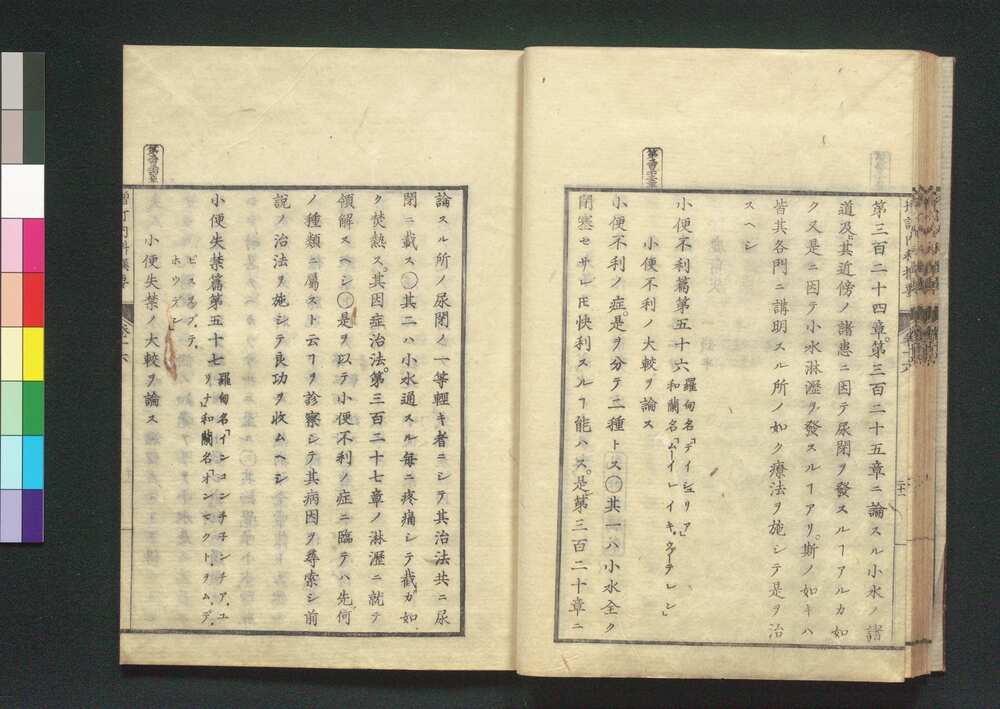 第三百二十四章。第三百二十五章ニ論スル小水ノ諸
道及其近傍ノ諸患ニ因テ尿閉ヲ發スルヿアルカ如
クス又是ニ因テ小水淋瀝ヲ發スルヿアリ。斯ノ如キハ
皆其各門ニ講明スル所ノ如ク療法ヲ施シテ是ヲ治
スヘシ
小便不利篇第五十六 羅甸名「デイシュリア」
和蘭名「ムーイレイキ、ウーテレン」
小便不利ノ大較ヲ論ス
小便不利ノ症。是ヲ分テ二種トス㊉其一ハ小水全ク
閉塞セサレ𪜈快利スルヿ能ハス。是第三百二十章ニ
論スル所ノ尿閉ノ一等輕キ者ニシテ其治法共ニ尿
閉ニ載ス㊉其二ハ小水通スル毎ニ疼痛シテ截カ如
ク焚熱ス。其因症治法。第三百二十七章ノ淋瀝ニ就テ
領解スヘシ㊉是ヲ以テ小便不利ノ症ニ臨テハ先何
ノ種類ニ屬スト云フヲ診察シテ其病因ヲ尋索シ前
説ノ治法ヲ施シテ良功ヲ收ムヘシ
小便失禁篇第五十七 羅甸名「インコンチ子ンチア、ユ
リナ」和蘭名「オンマクト、ヲム、デ、
ピスヲプ、テ、
ホウデン」
小便失禁ノ大較ヲ論ス